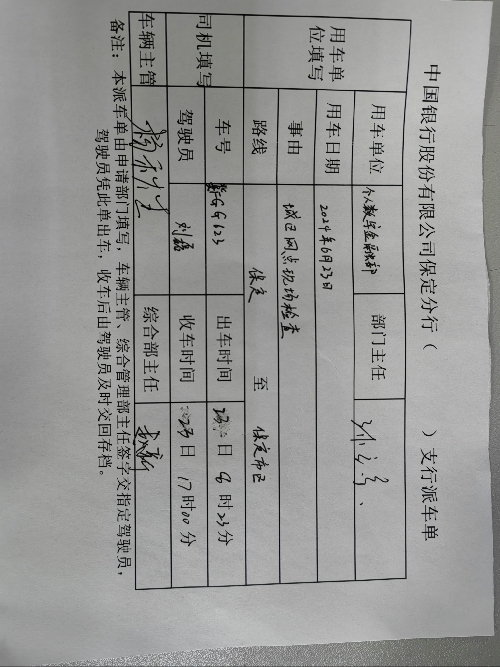 中国银行股份有限公司保定分行（ ）支行派车单
用车单位填写 用车单位 个人数字金融部 部门主任
用车日期 2024年6月23日
事由 城区网点现场检查
路线 保定 至 保定市区
司机填写 车号 GG623 出车时间 23日 8时23分
驾驶员 刘磊 收车时间 23日 17时00分
车辆主管 综合部主任
备注：本派车单由申请部门填写，车辆主管、综合管理部主任签字交指定驾驶员，
驾驶员凭此单出车，收车后由驾驶员及时交回存档。